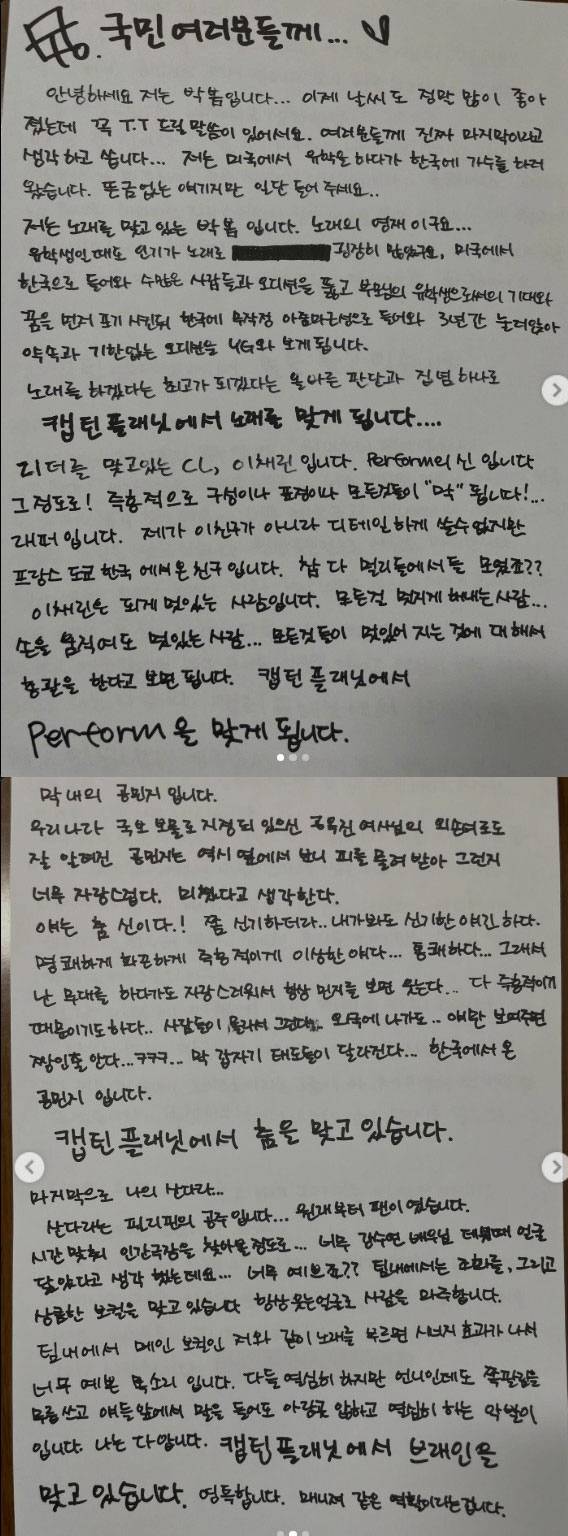 국민여러분들께...
안녕하세요 저는 박봄입니다... 이제 날씨도 정말 많이 좋아
졌는데 꼭 T.T 드릴 말씀이 있어서요. 여러분들께 진짜 마지막이라고
생각하고 씁니다... 저는 미국에서 유학을 하다가 한국에 가수를 하러
왔습니다. 뜬금없는 얘기지만 일단 들어 주세요..
저는 노래를 맞고 있는 박봄 입니다. 노래의 영재 이구요...
유학생인때도 인기가 노래로 굉장히 많았구요, 미국에서
한국으로 들어와 수많은 사람들과 오디션을 뚫고 부모님의 유학생으로서의 기대와
꿈을 먼저 포기 시킨뒤 한국에 무작정 아줌마근성으로 들어와 3년간 눌러앉아
약속과 기한없는 오디션을 YG와 보게 됩니다.
노래를 하겠다는 최고가 되겠다는 올바른 판단과 집념 하나로
캡틴플래닛에서 노래를 맞게 됩니다....
리더를 맞고있는 CL, 이채린 입니다. Perform의 신 입니다
그정도로! 즉흥적으로 구성이나 표정이나 모든것들이 "막" 됩니다!...
래퍼입니다. 제가 이친구가 아니라 디테일 하게 쓸수 없지만
프랑스 도쿄 한국 에서 온 친구 입니다. 참 다 멀리들에서들 모였죠??
이채린은 되게 멋있는 사람입니다. 모든걸 멋지게 해내는 사람...
손을 움직여도 멋있는 사람... 모든것들이 멋있어 지는 것에 대해서
총괄을 한다고 보면 됩니다. 캡틴 플래닛에서
Perform을 맞게 됩니다.
막내의 공민지 입니다.
우리나라 국보 보물로 지정되 있으신 공옥진 여사님의 외손녀로도
잘 알려진 공민지는 역시 옆에서 보니 피를 물려 받아 그런지
너무 자랑스럽다. 미쳤다고 생각한다.
얘는 춤 신이다.! 쫌 신기하더라.. 내가봐도 신기한 얘긴 하다.
명쾌하게 화끈하게 즉흥적이게 이상한 얘다... 통쾌하다... 그래서
난 무대를 하다가도 자랑스러워서 항상 민지를 보면 웃는다... 다 즉흥적이기
때문이기도하다.. 사람들이 몰라서 그런다... 외국에 나가도.. 얘만 보여주면
짱인줄 안다...ㅋㅋㅋ... 막 갑자기 태도들이 달라진다... 한국에서 온
공민지 입니다.
캡틴플래닛에서 춤을 맞고 있습니다.
마지막으로 나의 산다라...
산다라는 필리핀의 공주입니다... 원래부터 팬이 였습니다.
시간 맞춰 인간극장을 찾아볼정도로... 너무 강수연 배우님 데뷔때 얼굴
닮았다고 생각 했는데요... 너무 예쁘죠?? 팀내에서는 조화를, 그리고
상큼한 보컬을 맞고 있습니다 항상웃는얼굴로 사람을 마주합니다.
팀 내에서 메인 보컬인 저와 같이 노래를 부르면 시너지 효과가 나서
너무 예쁜 목소리 입니다. 다들 열심히 하지만 언니인데도 쪽팔림을
무릅쓰고 얘들앞에서 말을 들어도 아랑곳 않하고 열심히 하는 악발이
입니다. 나는 다 압니다. 캡틴플래닛에서 브레인을
맞고 있습니다. 영특합니다. 매니져 같은 역할이라는겁니다.